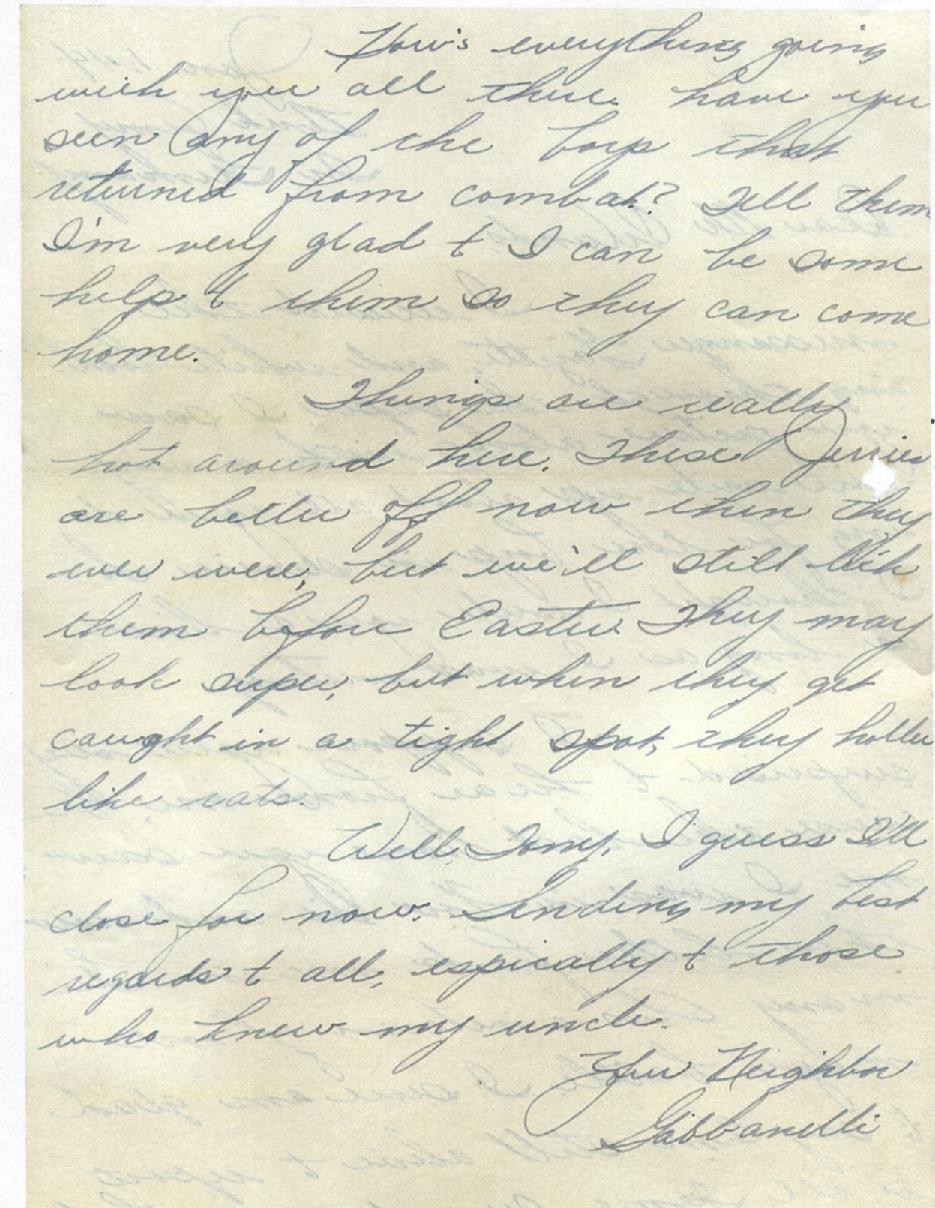 How's everything going
with you all there. have you
seen any of the boys that
returned from combat? Tell them
I'm very glad t I can be some
help t them so they can come
home.
Things are really
hot around here. These Jerries
are better off now then they
ever were, but we'll still lick
them before Easter. They may
look super, but when they get
caught in a tight spot, they holler
like rats.
Well, Tony, I guess I'll
close for now. Sending my best
regards t all, espically t those
who knew my uncle.
Your Neighbor
Gabbanelli